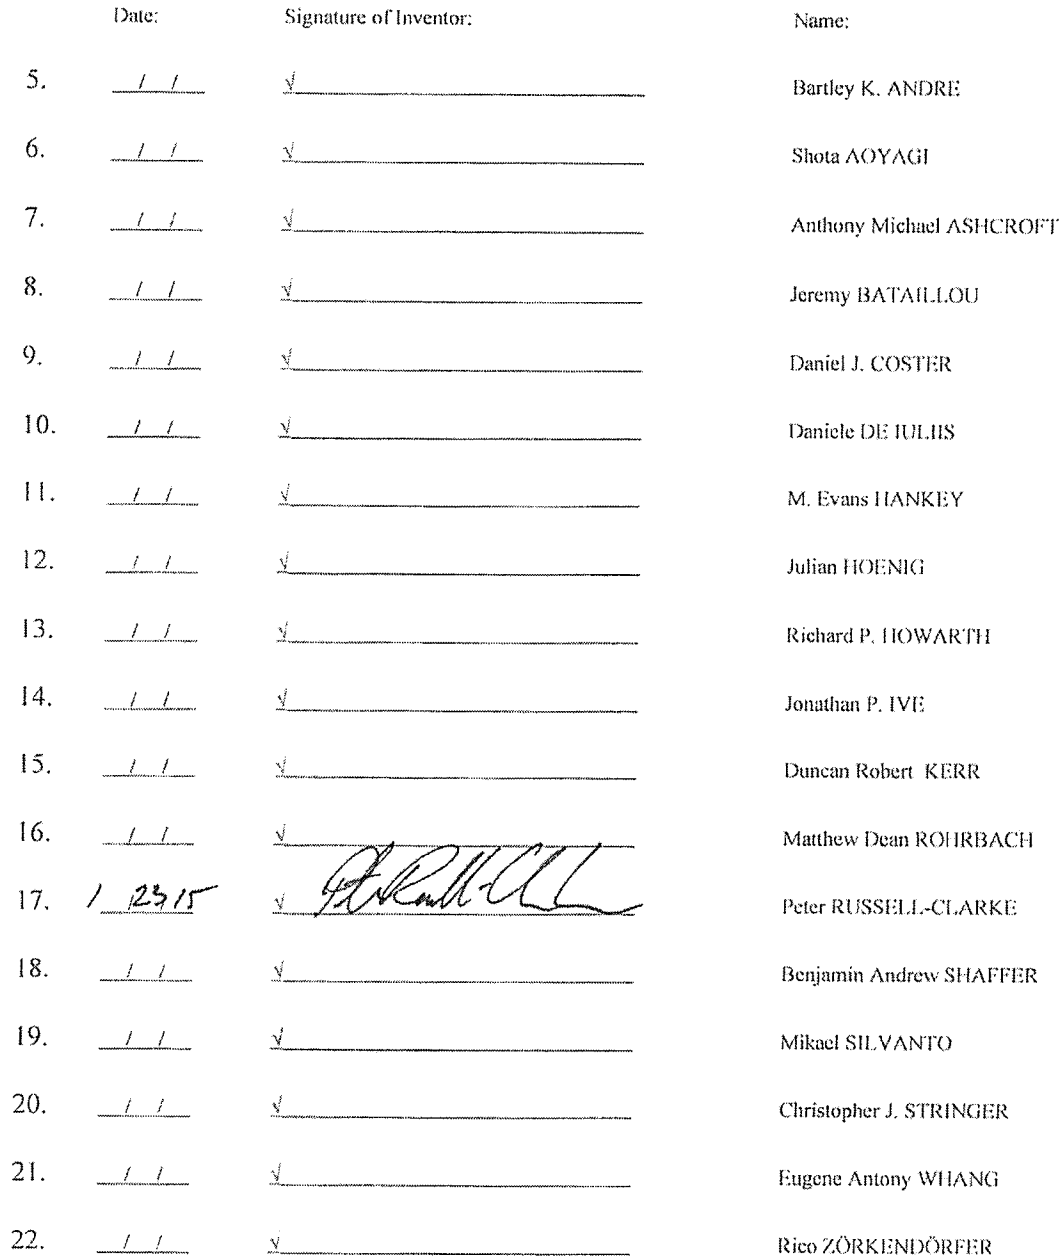 Date: Signature of Inventor: Name:
5. / / √ Bartley K. ANDRE
6. / / √ Shota AOYAGI
7. / / √ Anthony Michael ASHCROFT
8. / / √ Jeremy BATAILLOU
9. / / √ Daniel J. COSTER
10. / / √ Daniele DE IULIIS
11. / / √ M. Evans HANKEY
12. / / √ Julian HOENIG
13. / / √ Richard P. HOWARTH
14. / / √ Jonathan P. IVE
15. / / √ Duncan Robert KERR
16. / / √ Matthew Dean ROHRBACH
17. 1 23 15 √ Peter RUSSELL-CLARKE
18. / / √ Benjamin Andrew SHAFFER
19. / / √ Mikael SILVANTO
20. / / √ Christopher J. STRINGER
21. / / √ Eugene Antony WHANG
22. / / √ Rico ZÖRKENDÖRFER